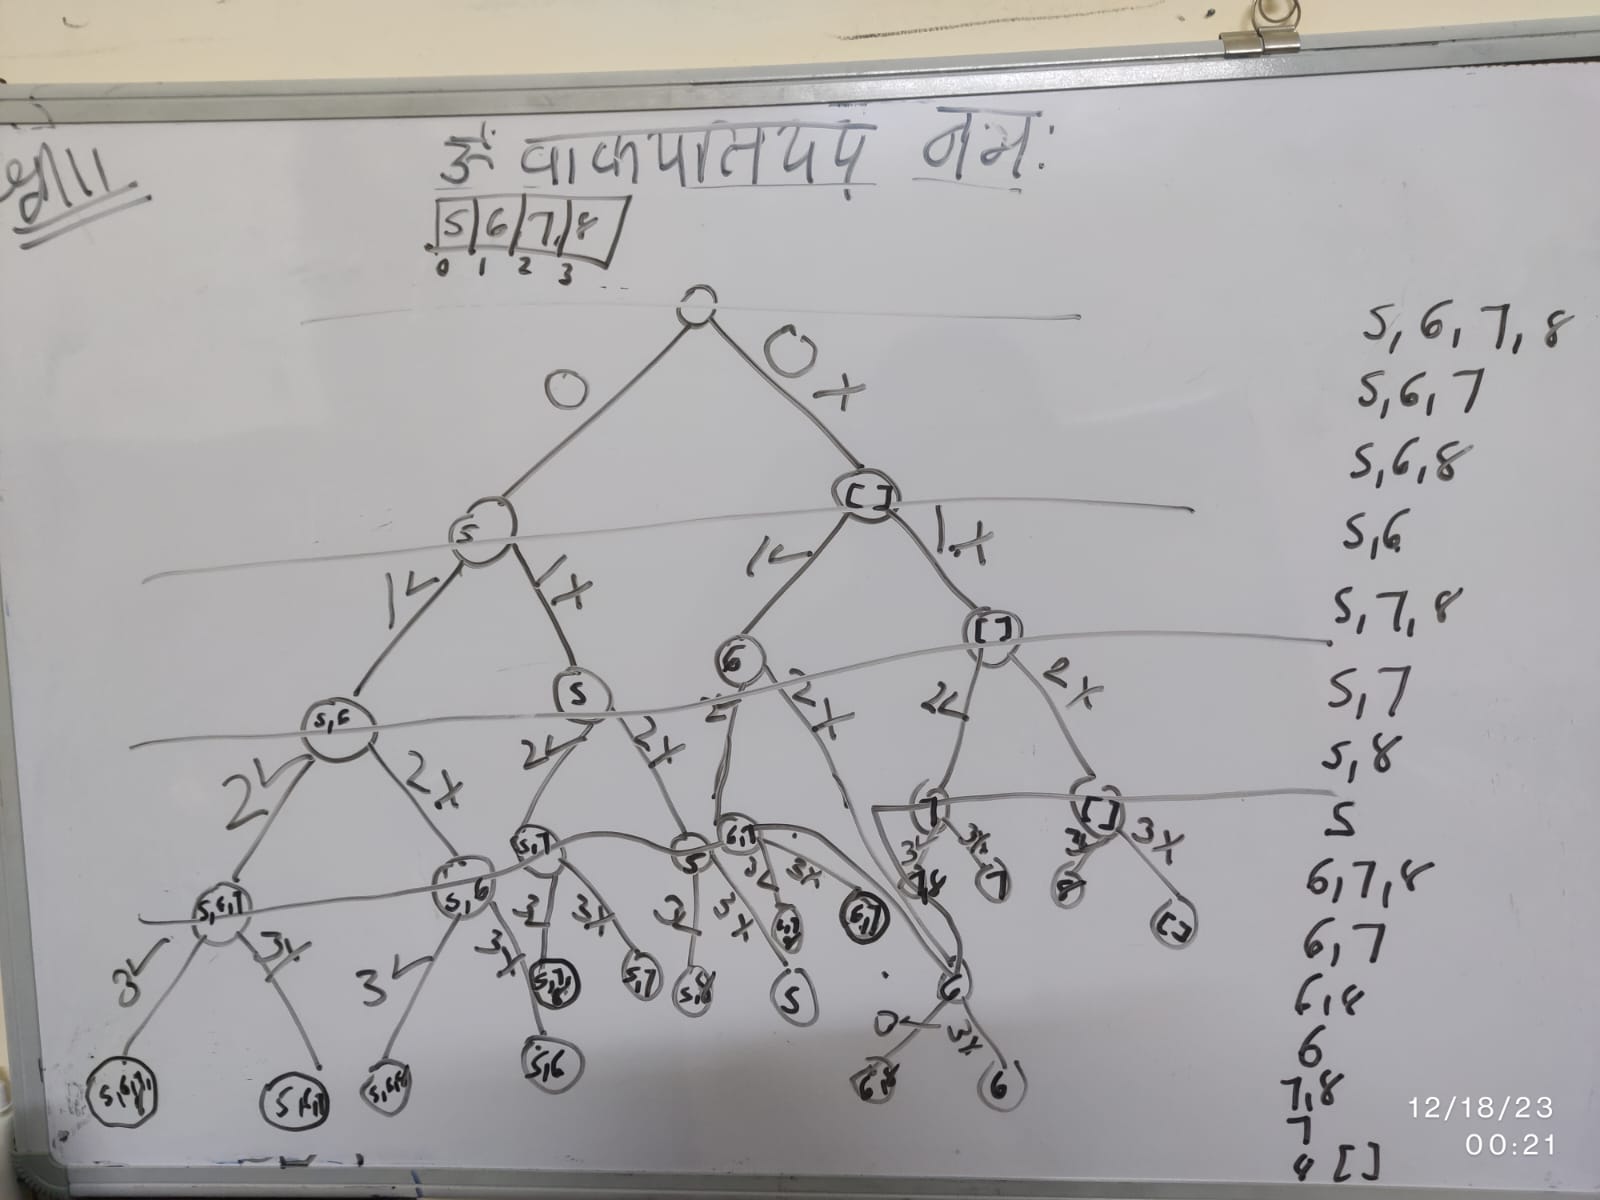 श्री॥
ॐ वाकपतियपे नमः
5 6 7 8
0 1 2 3
0 0 x
5 [ ]
1✓ 1x 1✓ 1x
5,6 5 6 [ ]
2✓ 2x 2✓ 2x 2✓ 2x 2✓ 2x
5,6,7 5,6 5,7 5 6,7 6 7 [ ]
3✓ 3x 3✓ 3x 3✓ 3x 3✓ 3x 3✓ 3x 3x 3✓ 3x 3✓ 3x
5,6,7,8 5,6,7 5,6,8 5,6 5,7,8 5,7 5,8 5 6,7,8 6,7 6,8 6 7,8 7 8 [ ]
5, 6, 7, 8
5, 6, 7
5, 6, 8
5, 6
5, 7, 8
5, 7
5, 8
5
6, 7, 8
6, 7
6, 8
6
7, 8
7
8 [ ]
12/18/23
00:21